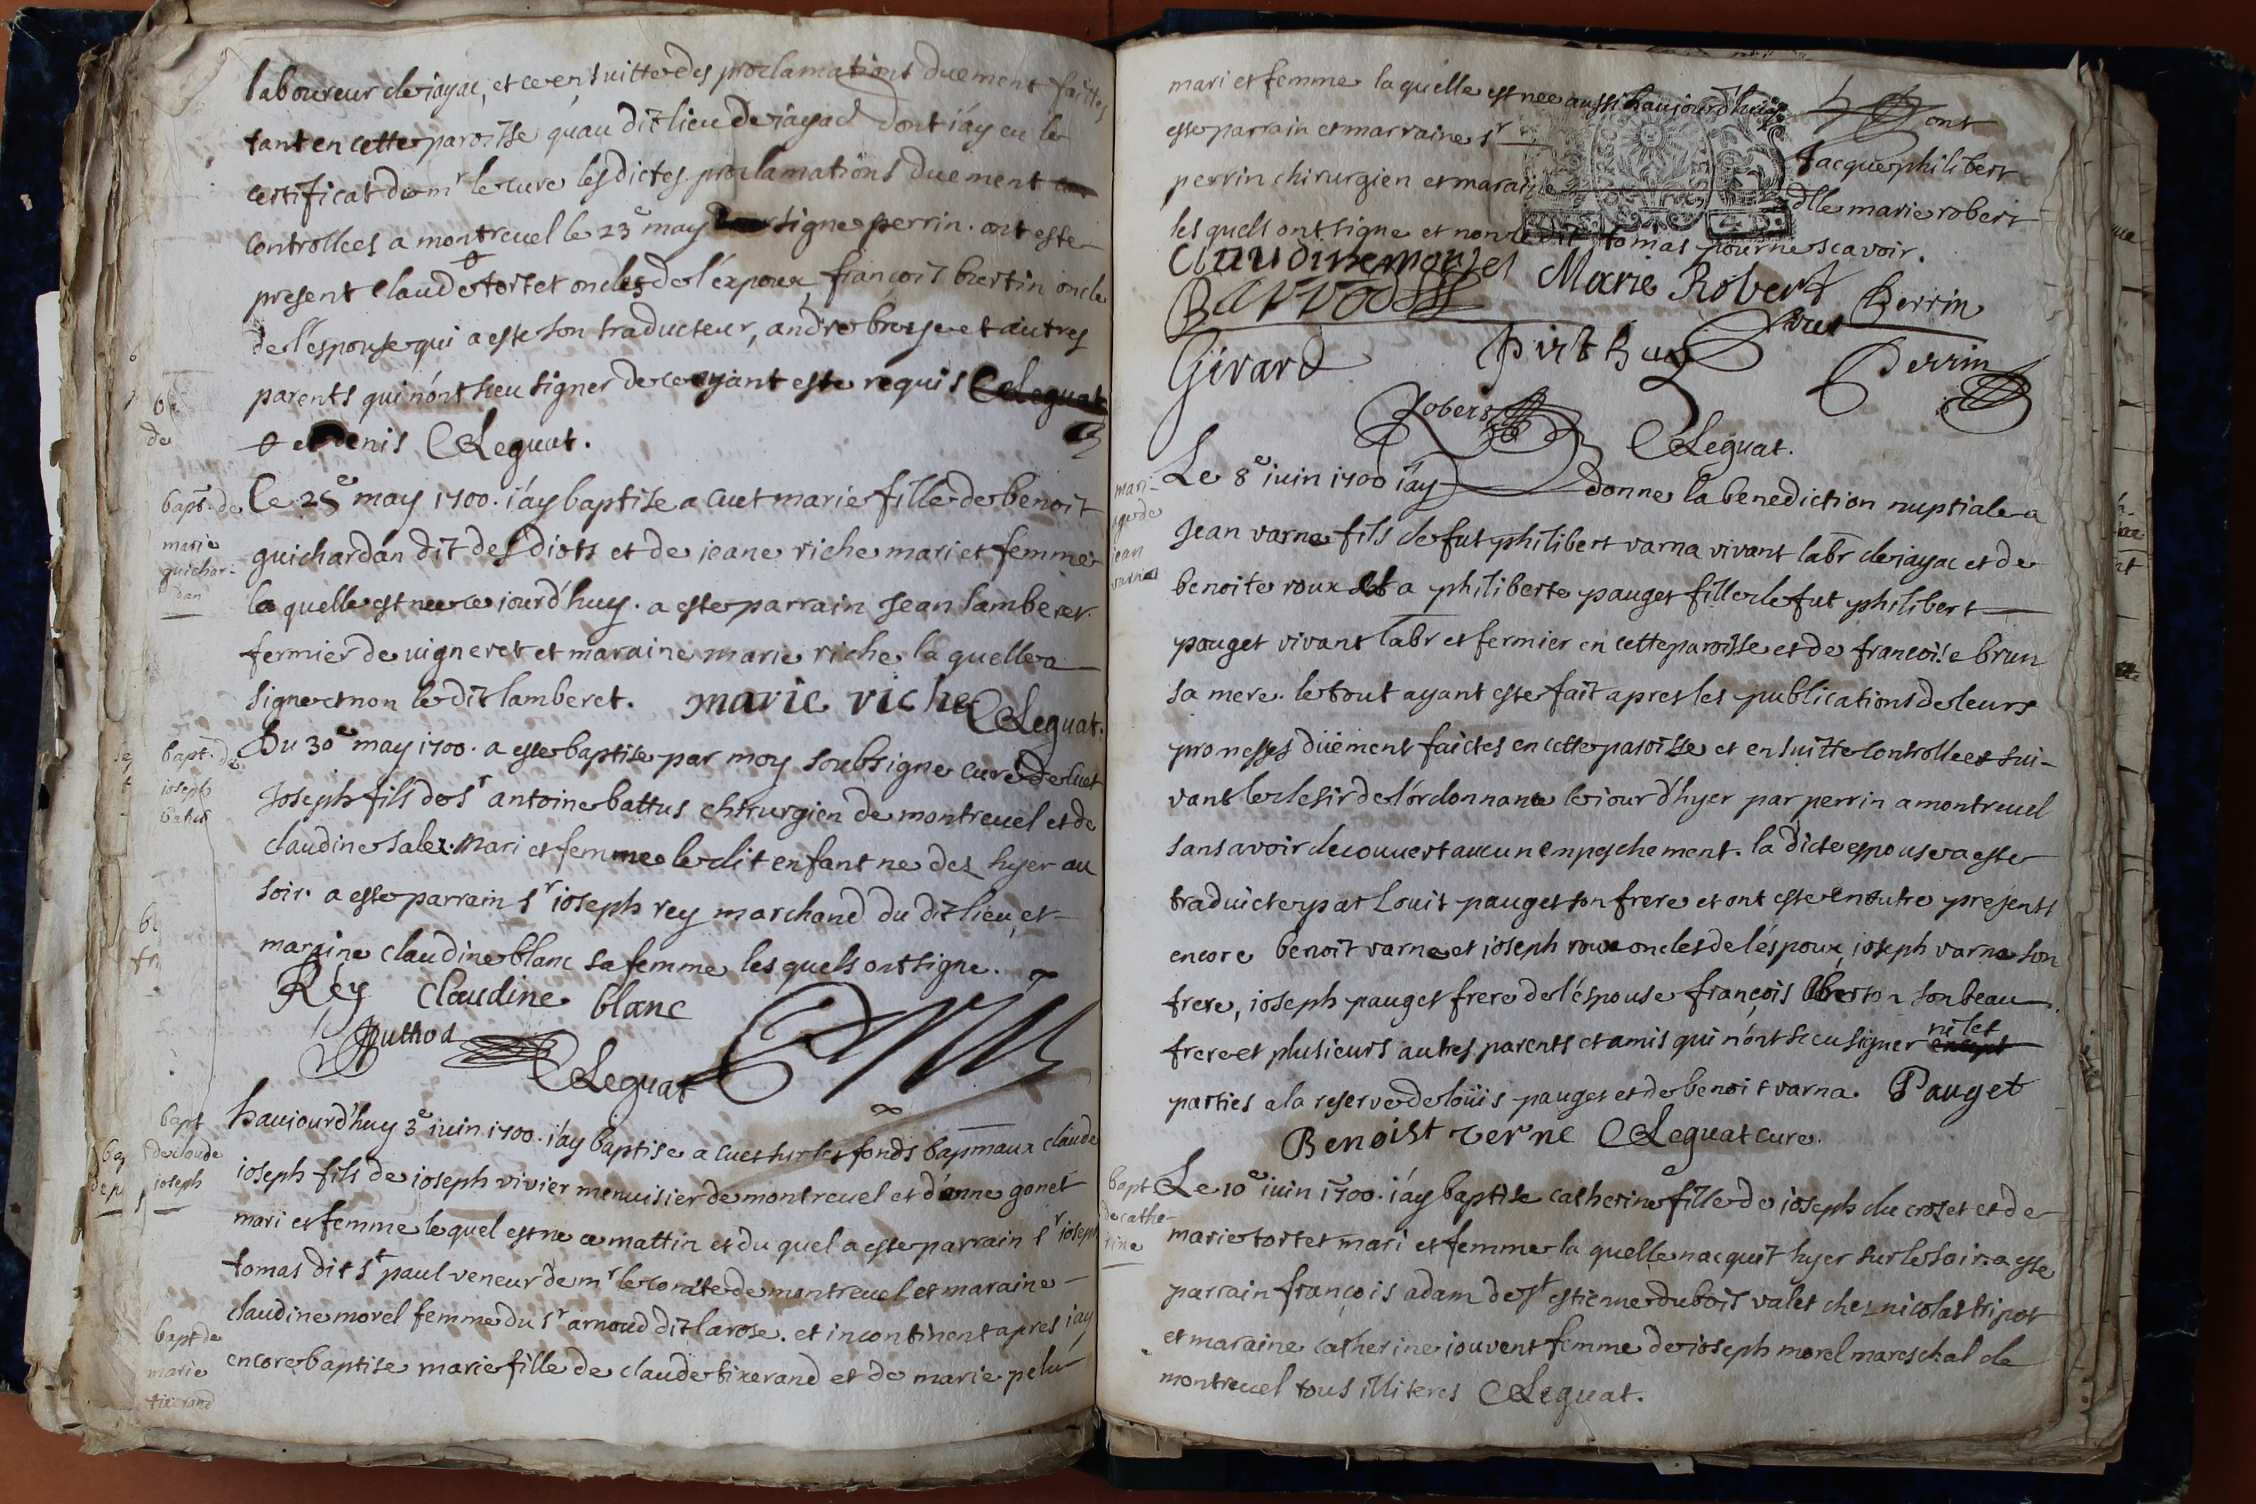 laboureur de iayac, et ce en suitte des proclamations duement faittes
tant en cette paroisse quau dit lieu de iayac dont iáy eu le
certificat de mr le cure lesdictes proclamations duement
controllees a montreuel le 23e may signe perrin. ont este
present claude tortet oncles de l'éxpoux, françois bertin oncle
de l'espouse qui a este son traducteur, andre broyse et autres
parents qui n'ónt sceu signer de ce eyant este requis CLeguat
et denis CLeguat.
bapt. de
marie
guichar-
dan
Le 25e may 1700. iáy baptise a cuet marie fille de benoit
guichardan dit des diots et de ieane riche mari et femme
la quelle est nee ce iourd'huy. a este parrain Jean lamberet
fermier de uigneret et maraine marie riche la quelle a
signe et non le dit lamberet. marie riche CLeguat.
bapt. de
ioseph
batus
Du 30e may 1700. a este baptise par moy soubsigne cure de cuet
Joseph fils de sr antoine battus chirurgien de montreuel et de
claudine sales mari et femme le dit enfant ne des hyer au
soir. a este parrain sr ioseph rey marchand du dit lieu, et
maraine claudine blanc sa femme les quels ont signe.
Rey claudine blanc
puthod
CLeguat
bapt
de claude
ioseph
haujourd'huy 3e iuin 1700. iáy baptise a cuet sur les fonds bapmaux claude
ioseph fils de ioseph vivier menuisier de montreuel et d'anne gonet
mari et femme le quel est ne ce mattin et du quel a este parrain sr ioseph
tomas dit st paul veneur de mr le comte de montreuel et maraine
claudine morel femme du sr arnoud dit larose. et incontinent apres iay
bapt de
marie
tixerand
encore baptise marie fille de claude tixerand et de marie pelu
mari et femme la quelle est nee aussi haujourd'huy ont
este parrain et marraine sr Jacque philibert
perrin chirurgien et maraine dlle marie robert
les quels ont signe et non le dit tomas pour ne scavoir.
Claudine morel Marie Robert Perrin
Girard Perrin
Robert
CLeguat.
mari-
age de
jean
varna
Le 8e iuin 1700 iáy donne la benediction nuptiale a
Jean varna fils de fut philibert varna vivant labr de iayac et de
benoite roux et a philiberte pauget fille de fut philibert
pouget vivant labr et fermier en cette paroisse et de francoise brun
sa mere. le tout ayant este fait apres les publications de leurs
promesses düement faictes en cette paroisse et en suitte controllees sui-
vant le desir de l'órdonnance le iour d'hyer par perrin a montreuel
sans avoir decouvert aucun empeschement. la dicte espouse a este
traduicte par Louis pauget son frere et ont este en outre presents
encore benoit varna et ioseph roux oncles de l'éspoux, ioseph varna son
frere, ioseph pauget frere de l'éspouse françois son beau
frere et plusieurs autres parents et amis qui n'ónt sceu signer ni les
parties a la reserve de loüis pauget et de benoit varna. Pauget
Benoist verne CLeguat cure.
bapt
de cathe-
rine
Le 10e iuin 1700. iáy baptise catherine fille de ioseph du croset et de
marie tortet mari et femme la quelle nacquit hyer sur le soir. a este
parrain françois adam de st estienne du bois valet chez nicolas tripot
et maraine catherine iouvent femme de ioseph morel mareschal de
montreuel tous illiteres CLeguat.